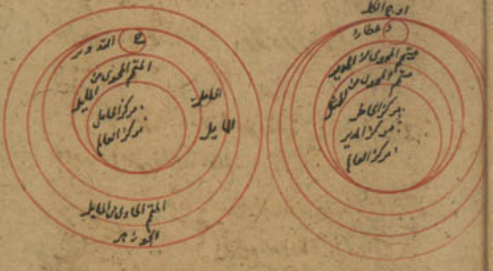 اوج الكل
عطارد
متمم المحوى من المدير
متمم المحوى من الممثل
مركز الحامل
مركز المدير
مركز العالم
التدوير
المتمم المحوى من
المايل
الحامل
المايل
مركز الحامل
مركز العالم
المتمم الحاوى من المايل
الجوزهر